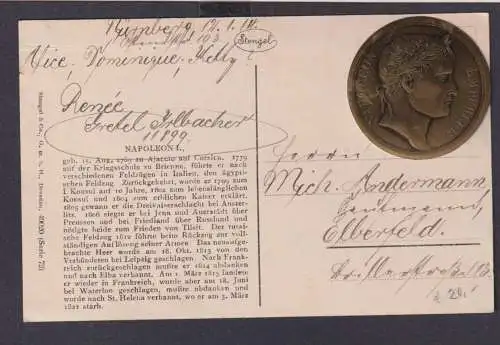 Nürnberg 12.1.12.
Stengel
Vice, Dominique, Hetty!
Renée
Gretel Irlbacher
11899
NAPOLEON I.,
geb. 15. Aug. 1769 zu Ajaccio auf Corsica. 1779
auf der Kriegsschule zu Brienne, führte er nach
verschiedenen Feldzügen in Italien, den ägypi-
schen Feldzug. Zurückgekehrt, wurde er 1799 zum
Konsul auf 10 Jahre, 1802 zum lebenslänglichen
Konsul und 1804 zum erblichen Kaiser erklärt.
1805 gewann er die Dreikaiserschlacht bei Auster-
litz. 1806 siegte er bei Jena und Auerstädt über
Preussen und bei Friedland über Russland und
nötigte beide zum Frieden von Tilsit. Der rus-
sische Feldzug 1812 führte beim Rückzug zur voll-
ständigen Auflösung seiner Armee. Das neuausge-
brachte Heer wurde am 18. Okt. 1813 von den
Verbündeten bei Leipzig geschlagen. Nach Frank-
reich zurückgeschlagen mußte er 1814 abdanken
und nach Elba verbannt. Am 1. März 1815 landete
er wieder in Frankreich, wurde aber am 18. Juni
bei Waterloo geschlagen, mußte abdanken und
wurde nach St. Helena verbannt, wo er am 5. März
1821 starb.
Stengel & Co., G. m. b. H., Dresden. 29920 (Serie 72)
Herrn
Mich. Andermann,
Kaufmann,
Elberfeld.